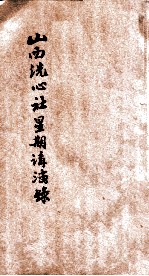 山西洗心社星期講演錄